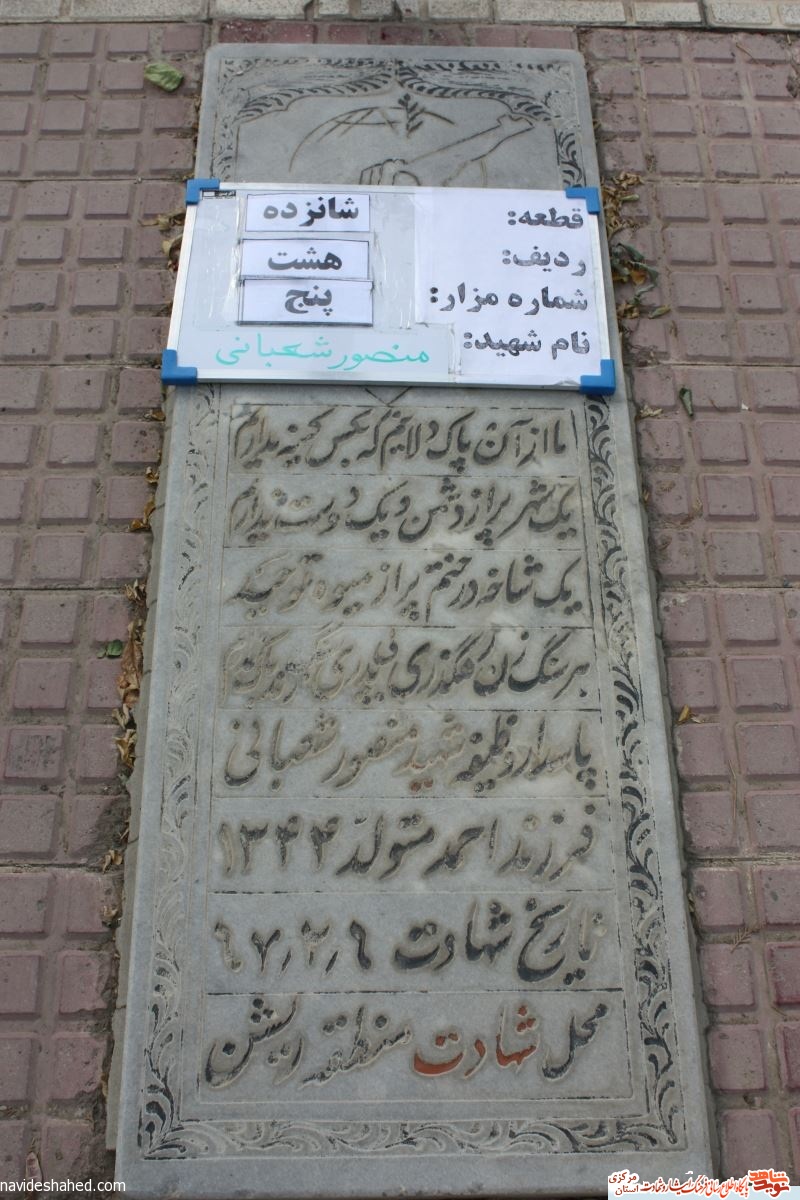 قطعه: شانزده
ردیف: هشت
شماره مزار: پنج
نام شهید: منصور شعبانی
ما از آن پاک دلانیم که بکس کینه نداریم
یک شهر پر از دشمن و یک دوست نداریم
یک شاخه درختیم پر از میوه توحید
هر سنگ زند رهگذری
پاسدار وظیفه شهید منصور شعبانی
فرزند احمد متولد ۱۳۴۴
تاریخ شهادت ۶۷٫۲٫۶
محل شهادت منطقه ریشن
navideshahed.com
نوید شاهد
استان مرکزی